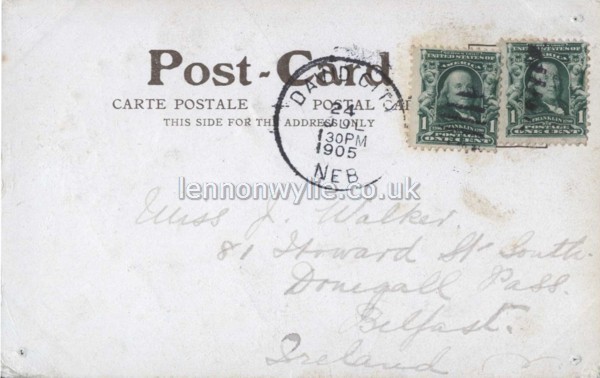 Post-Card
CARTE POSTALE POSTAL
THIS SIDE FOR THE ADDRESS ONLY
DAVID CITY
24
JUL
130PM
1905
NEB.
UNITED STATES OF
AMERICA
FRANKLIN
POSTAGE
1 ONE CENT 1
UNITED STATES OF
AMERICA
FRANKLIN
POSTAGE
1 ONE CENT 1
lennonwylie.co.uk
Miss J. Walker
81 Howard St South
Donegall Pass.
Belfast.
Ireland